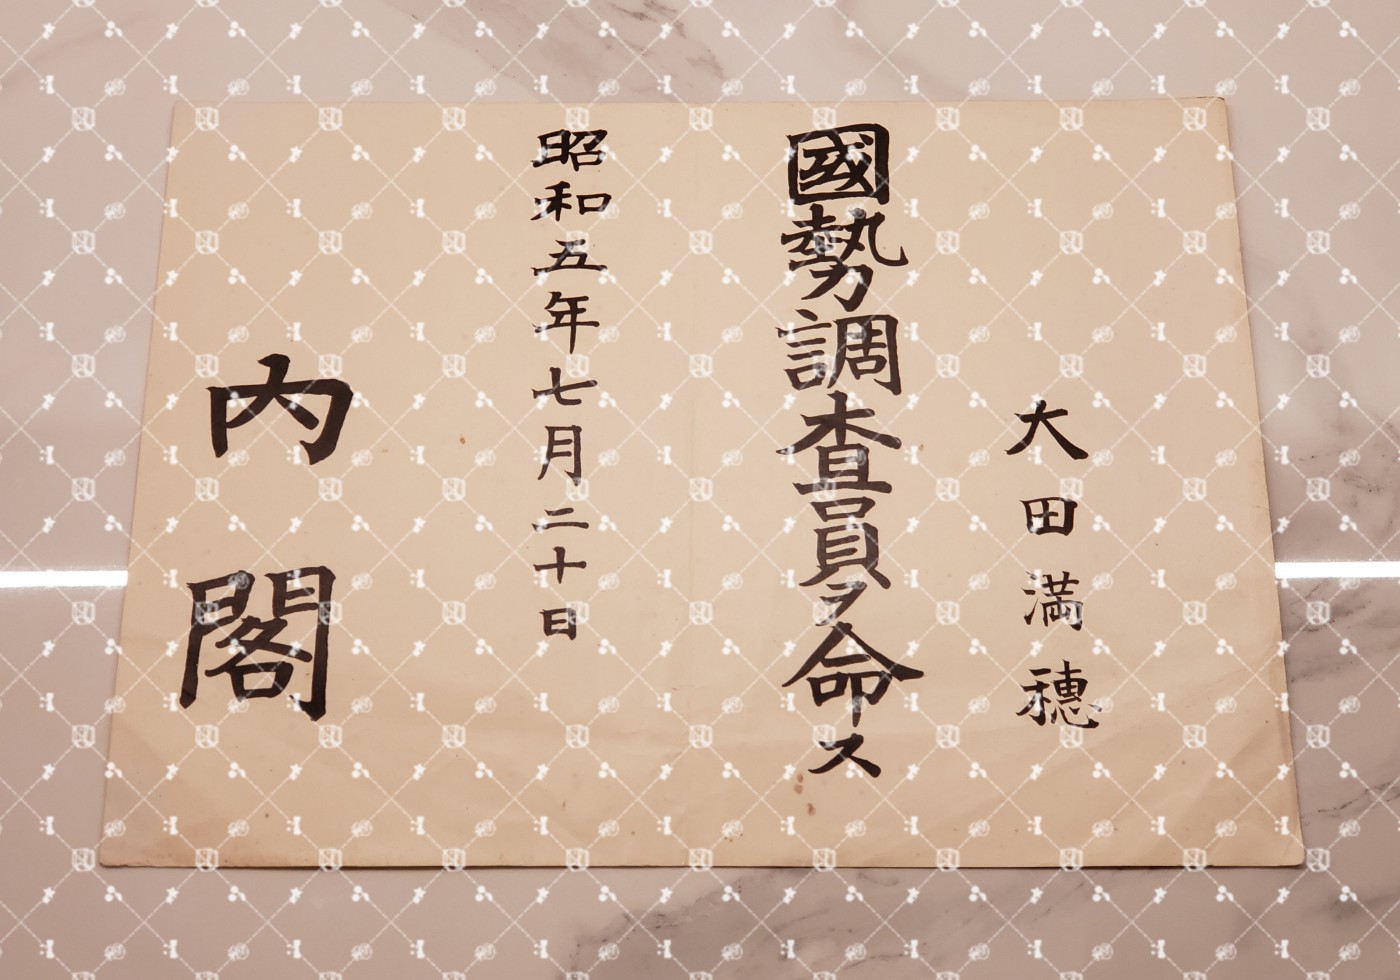 大田満穂
國勢調査員ヲ命ス
昭和五年七月二十日
内閣